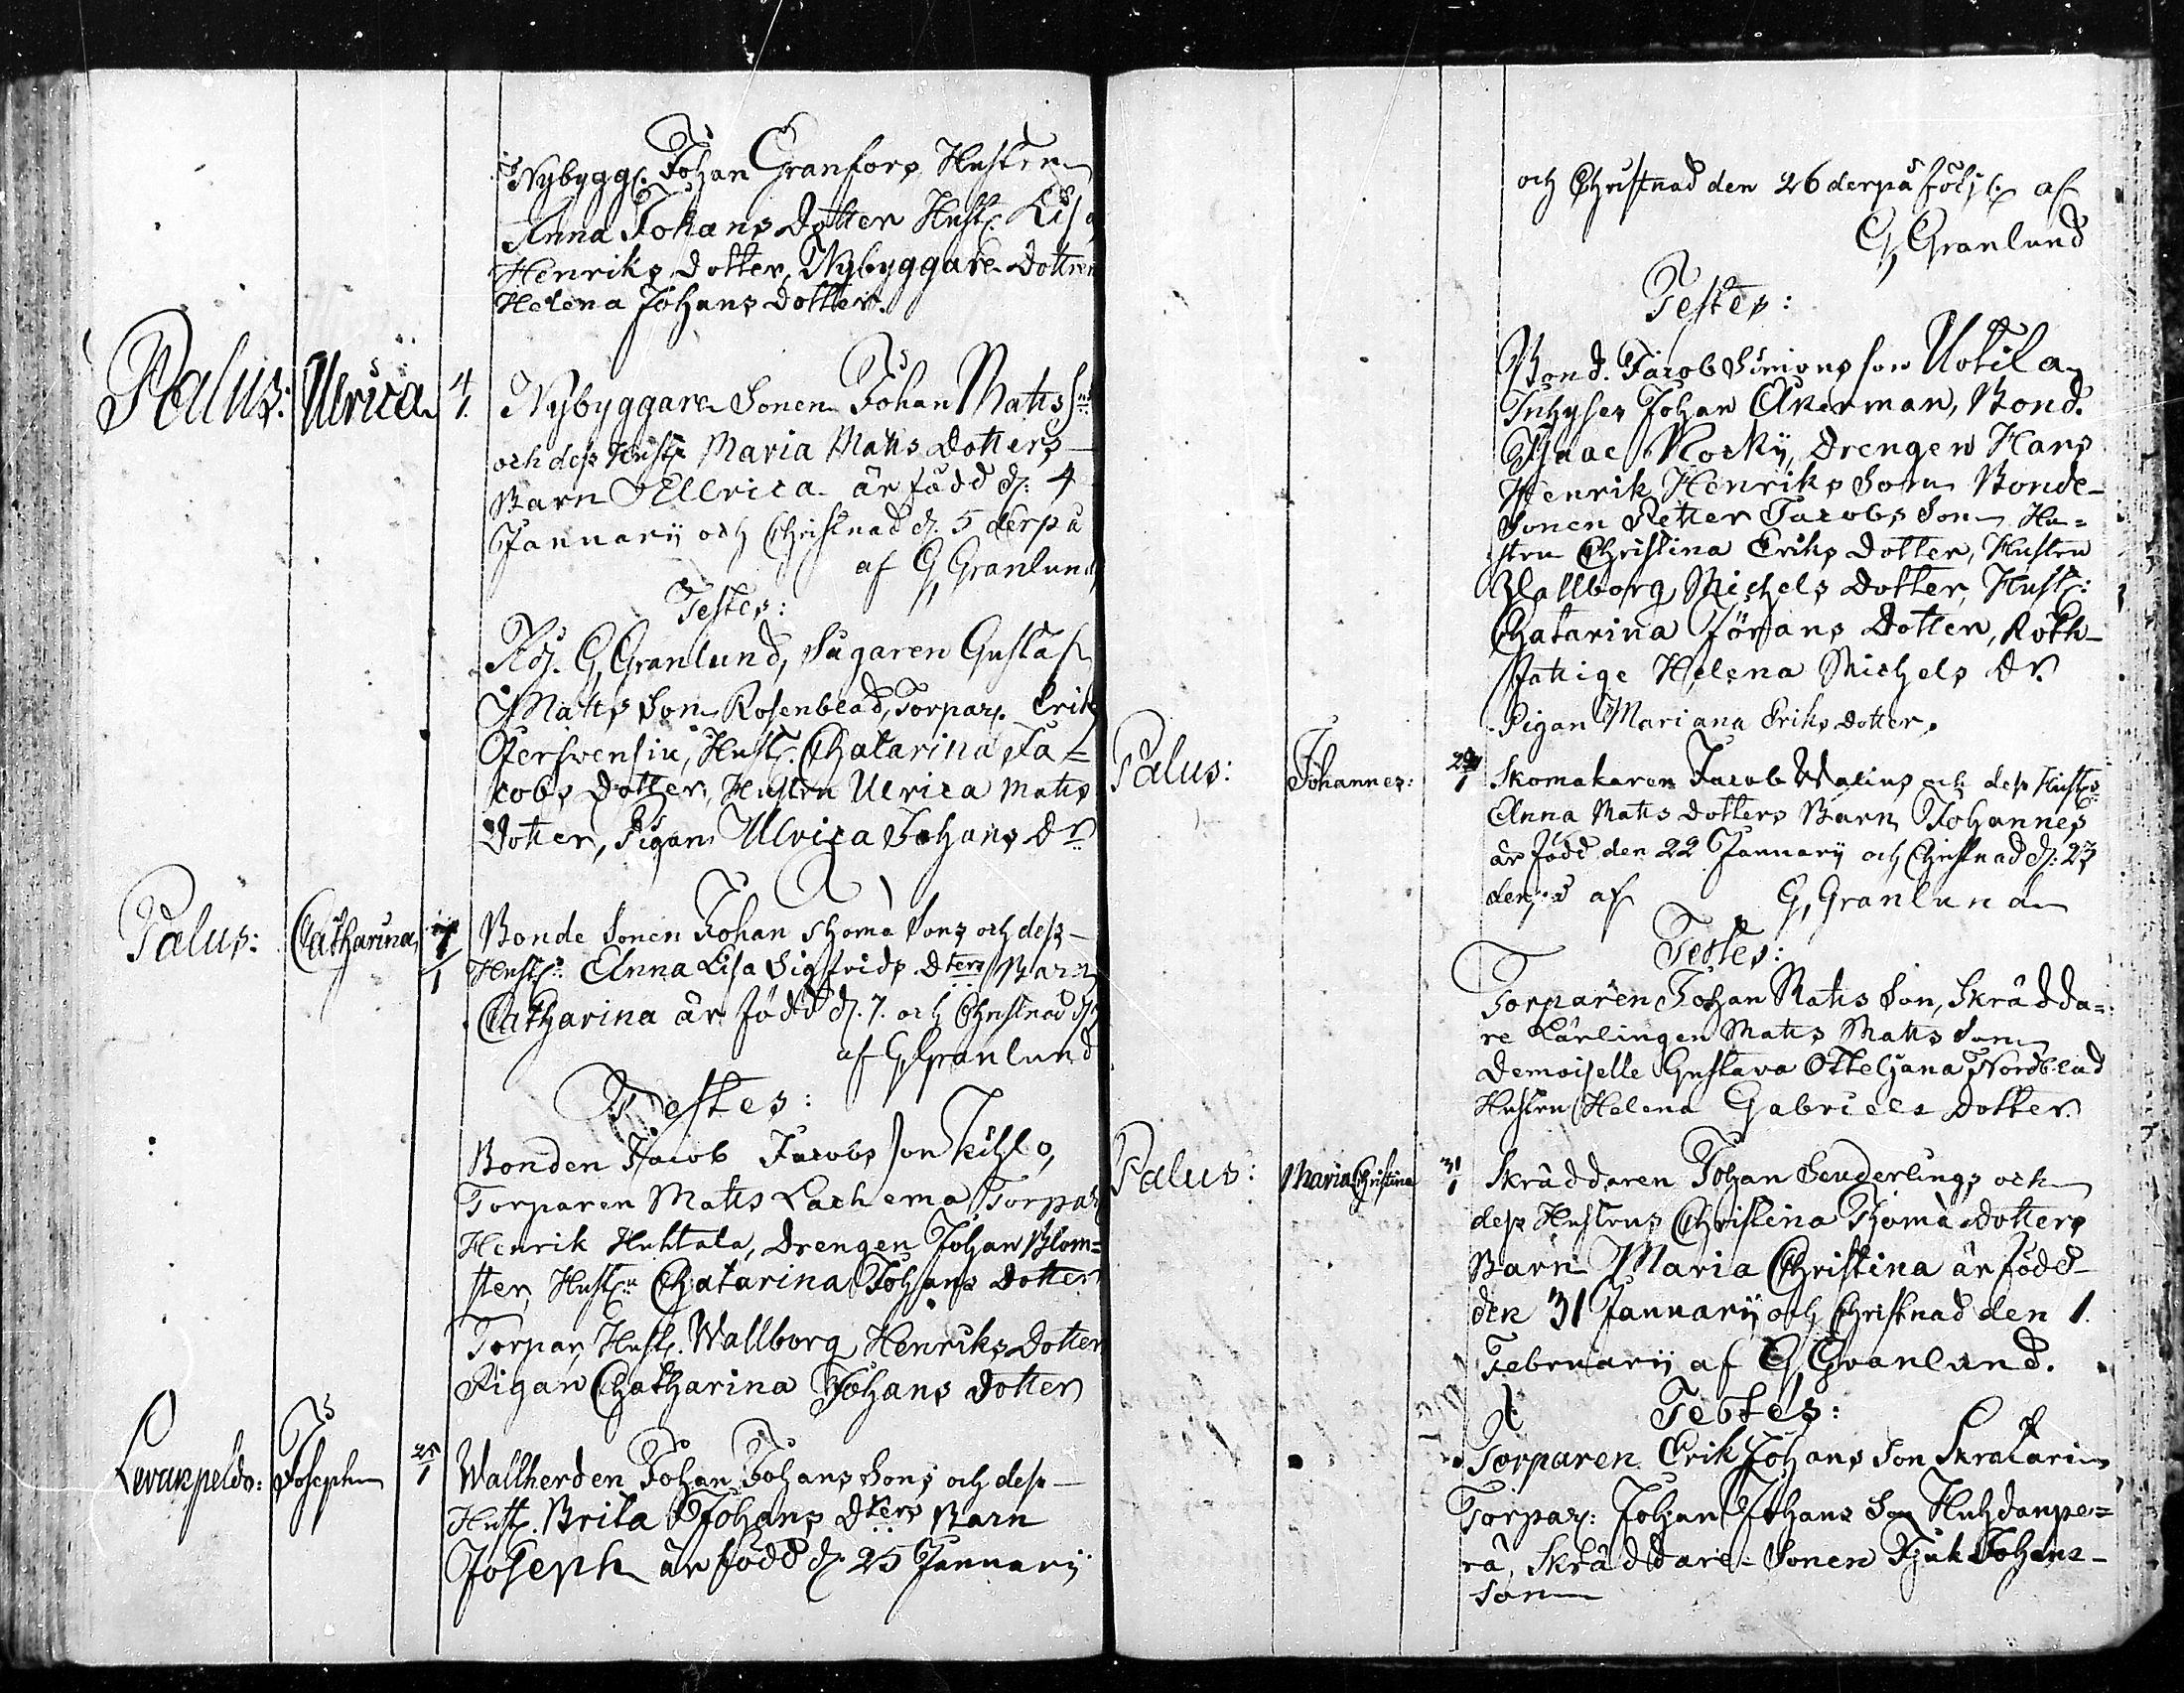 Nybygg. Johan Granfors Hustrun
Anna Johans Dotter Hust. Lisa
Henriks Dotter, Nybyggare Dottren
Helena Johans Dotter.
Palus: Ulrica 4/1. Nybyggare Sonen Johan Mats Sns
och dess Hust. Maria Mats Dotters
Barn Ullrica är född d. 4
Januarij och Christnad d. 5 derpå
af G, Granlund
Testes:
G, Granlund, Sågaren Gustaf
Mats Son Rosenblad, Torpar. Erik
Hust. Chatarina Ja=
cobs Dotter, Hustru Ulrica Mats
Dotter, Pigan Ulrica Johans Dr
Palus: Catharina 7/1 Bonde Sonen Johan Thomä Sons och dess
Hust. Anna Lisa Sigfrids Dters Barn
Catharina är född d. 7. och Christnad d.
af G, Granlund
Testes:
Bonden Jacob Jacobs son
Torparen Mats Lachema, Torpar
Henrik Huhtala, Drengen Johan Blom=
ster, Hustru Chatarina Johans Dotter
Torpar, Hust. Wallborg Henriks Dotter
Pigan Chatharina Johans Dotter
Joseph 25/1 Wallherden Johan Johans Sons och dess
Hust. Brita Johans Dters Barn
Joseph är född d. 25 Januarij
och Christnad den 26 derpå följ. af
G, Granlund
Testes:
Bond. Jacob Simons son Uotila
Inhyses Johan Åkerman, Bond.
Isaac Kocky, Drengen Hans
Henrik Henriks Son Bonde
Sonen Petter Jacobs Son Hu=
stru Christina Eriks Dotter, Hustru
Wallborg Michels Dotter, Hust:
Chatarina Jörans Dotter, Roth
fattige Helena Michels Dr.
Pigan Mariana Eriks Dotter.
Palus: Johannes: 22/1 Skomakaren Jacob Walins och dess Husts
Anna Mats Dotters Barn Johannes
är född den 22 Januarij och Christnad d: 23
af G, Granlund
Testes:
Torparen Johan Mats Son, Skrädda=
re Lärlingen Mats Mats Son
Demoiselle Gustava Otteljana Nordblad
Hustru Helena Gabriels Dotter.
Palus: Maria Christina 31/1 Skräddaren Johan Senderlings och
dess Hustrus Christina Thomä Dotters
Barn Maria Christina är född
den 31 Januarij och Christnad den 1.
Februarij af G, Granlund.
Testes:
Torparen Erik Johans Son Skratari
Torpar: Johan Johans Son Huhdanpe=
rä, Skräddare Sonen Johans
son